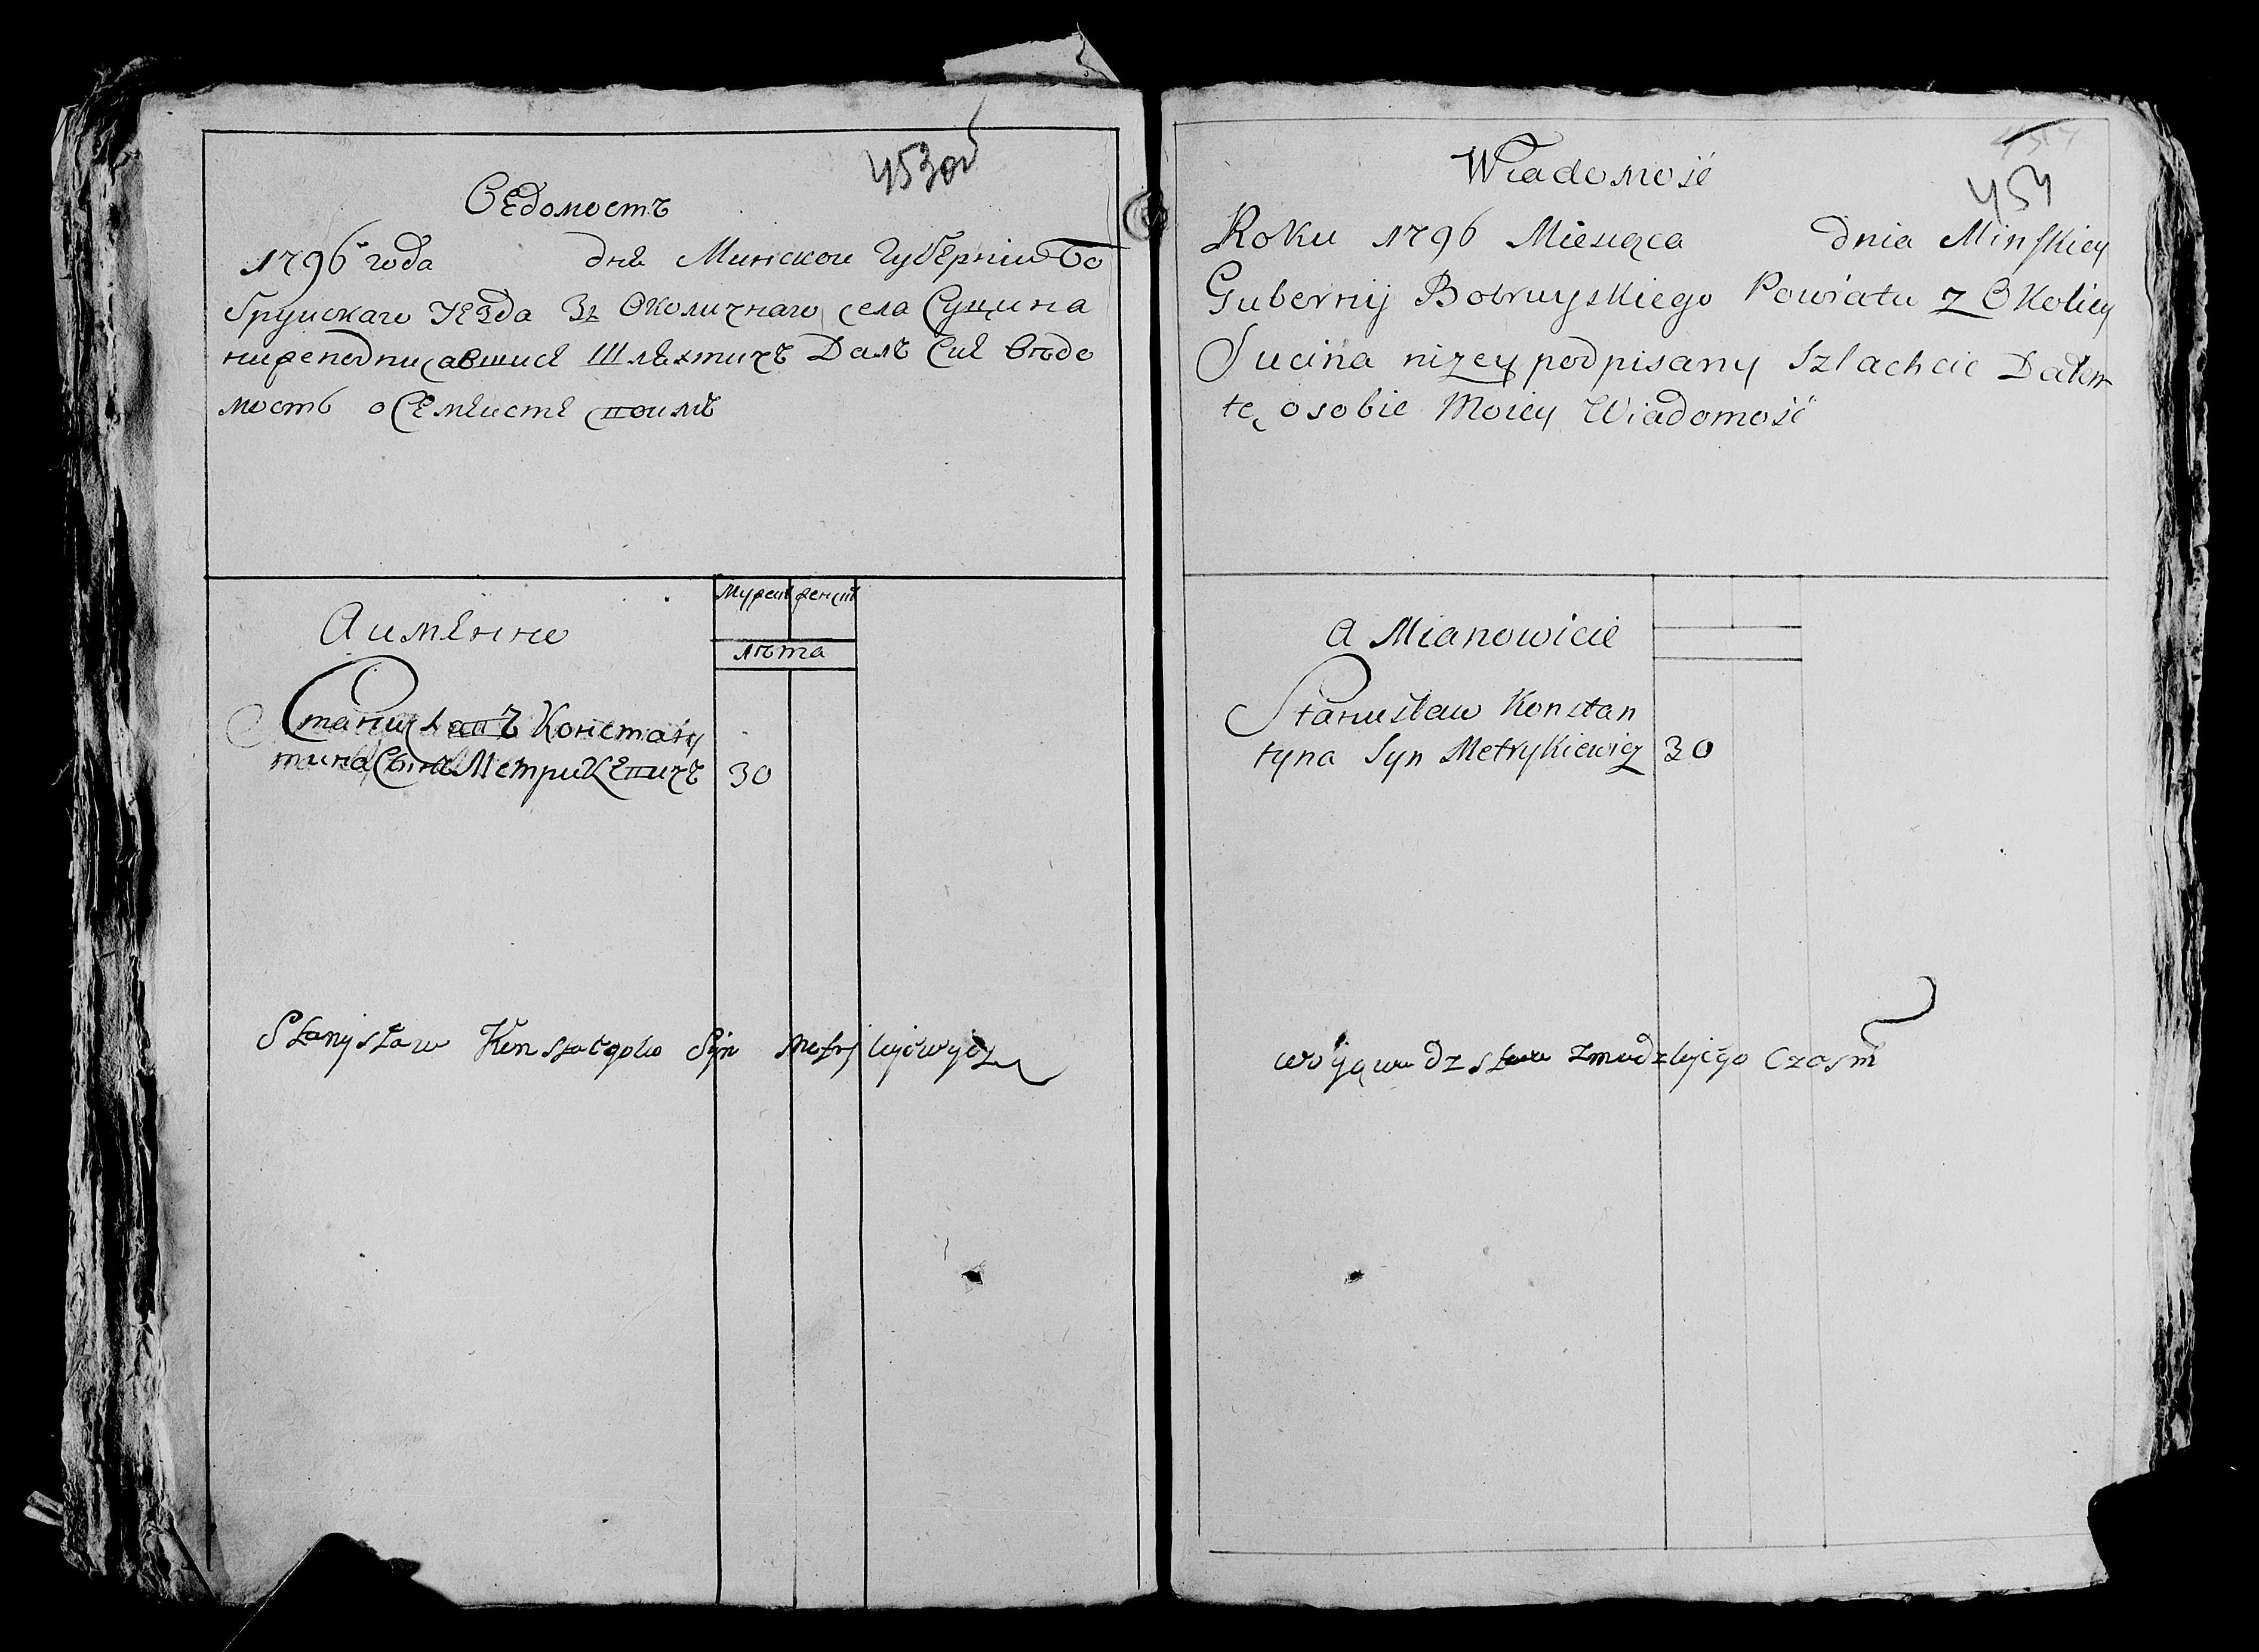 453об
Ведомостъ
1796 года дня Минскои Губернии Бо
бруискаго уезда Зъ Околичнаго села Сущина
нижеподписавшисе Шляхтичъ Далъ Сие вѣдо
мость о Семеисте своимъ
А имянно
Мужеск женск
лѣта
Станиславъ Констан
тина Сынъ Метрикевичъ 30
Stanysław Syn
454
Wiadomość
Roku 1796 Miesiąca dnia Minskiey
Gubernij Bobruyskiego Powiatu z Okolicy
Sucina nizey podpisany Szlachcic Dałem
tę o sobie Moiey Wiadomość
A Mianowicie
Stanisław Konstan
tyna Syn Metrykiewicz 30